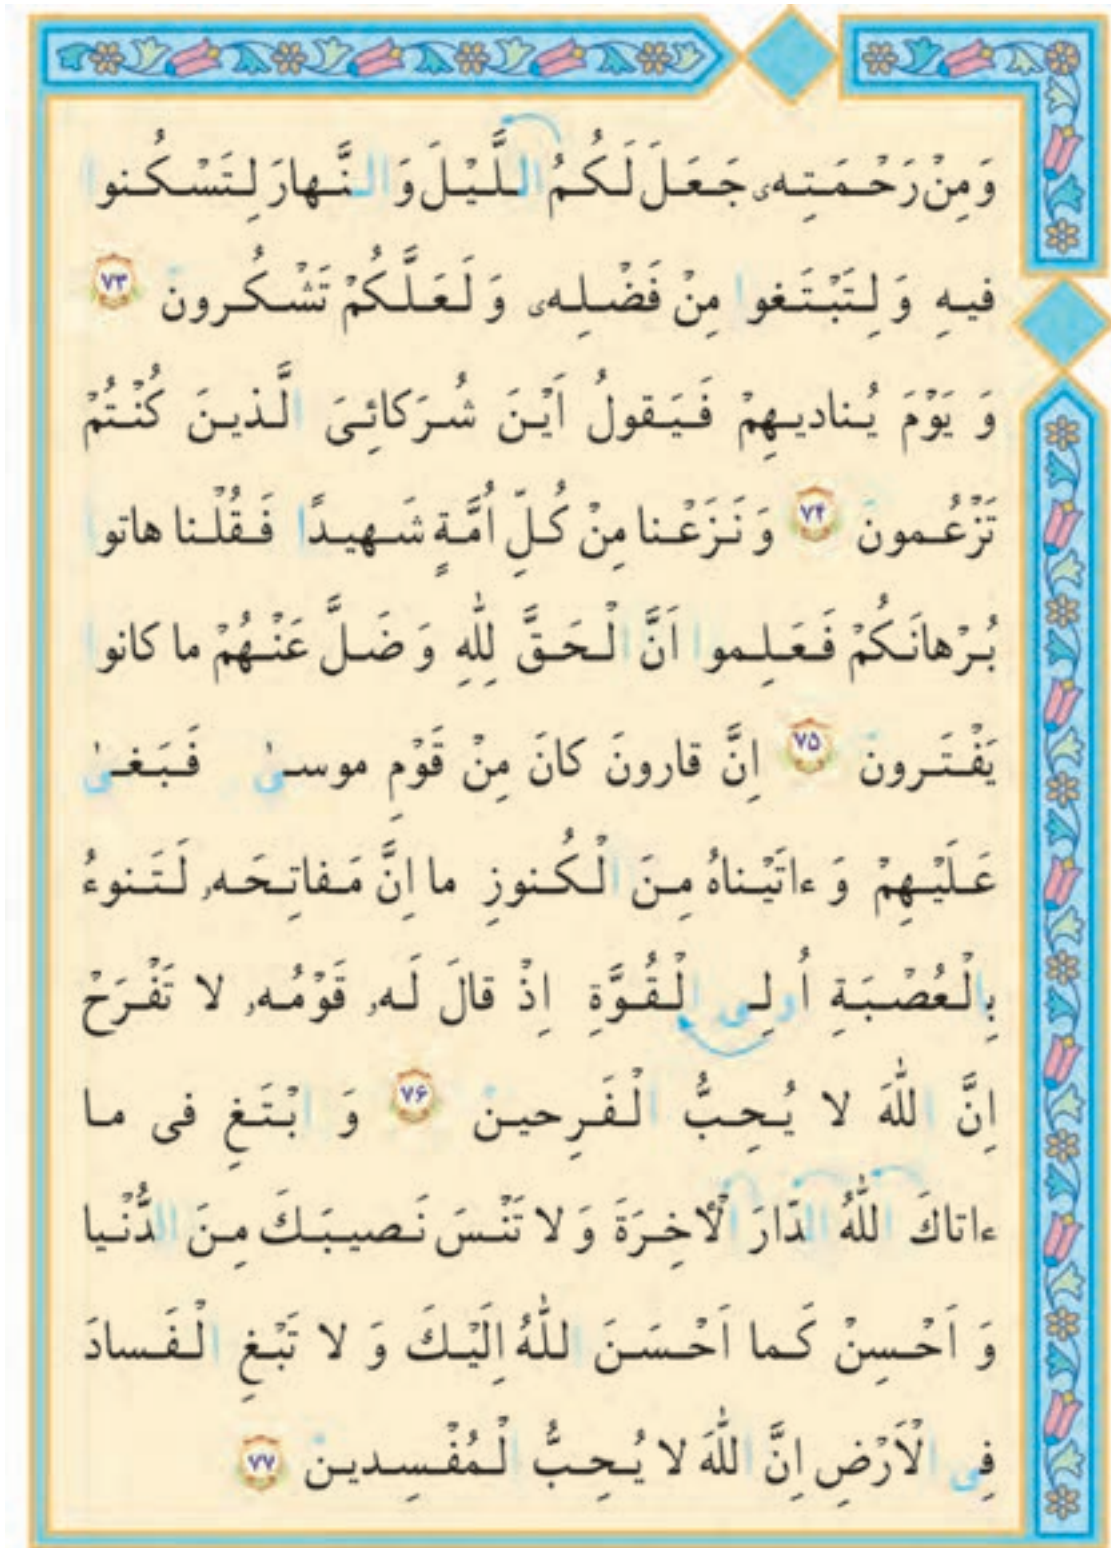 وَمِنْ رَحْمَتِهٖ جَعَلَ لَكُمُ الَّلیْلَ وَ النَّهارَ لِتَسْكُنوا
فیهِ وَ لِتَبْتَغوا مِنْ فَضْلِهٖ وَ لَعَلَّكُمْ تَشْكُرونَ ۷۳
وَ یَوْمَ یُنادیهِمْ فَیَقولُ اَیْنَ شُرَكائِیَ الَّذینَ كُنْتُمْ
تَزْعُمونَ ۷۴ وَ نَزَعْنا مِنْ كُلِّ اُمَّةٍ شَهیدًا فَقُلْنا هاتوا
بُرْهانَكُمْ فَعَلِموا اَنَّ الْحَقَّ لِلّٰهِ وَ ضَلَّ عَنْهُمْ ما كانوا
یَفْتَرونَ ۷۵ اِنَّ قارونَ كانَ مِنْ قَوْمِ موسیٰ فَبَغیٰ
عَلَیْهِمْ وَ ءاتَیْناهُ مِنَ الْكُنوزِ ما اِنَّ مَفاتِحَهٗ لَتَنوءُ
بِالْعُصْبَةِ اُولِی الْقُوَّةِ اِذْ قالَ لَهٗ قَوْمُهٗ لا تَفْرَحْ
اِنَّ اللّٰهَ لا یُحِبُّ الْفَرِحینَ ۷۶ وَ ابْتَغِ فی ما
ءاتاكَ اللّٰهُ الدّارَ الْأٓخِرَةَ وَ لا تَنْسَ نَصیبَكَ مِنَ الدُّنْیا
وَ اَحْسِنْ كَما اَحْسَنَ اللّٰهُ اِلَیْكَ وَ لا تَبْغِ الْفَسادَ
فِی الْاَرْضِ اِنَّ اللّٰهَ لا یُحِبُّ الْمُفْسِدینَ ۷۷